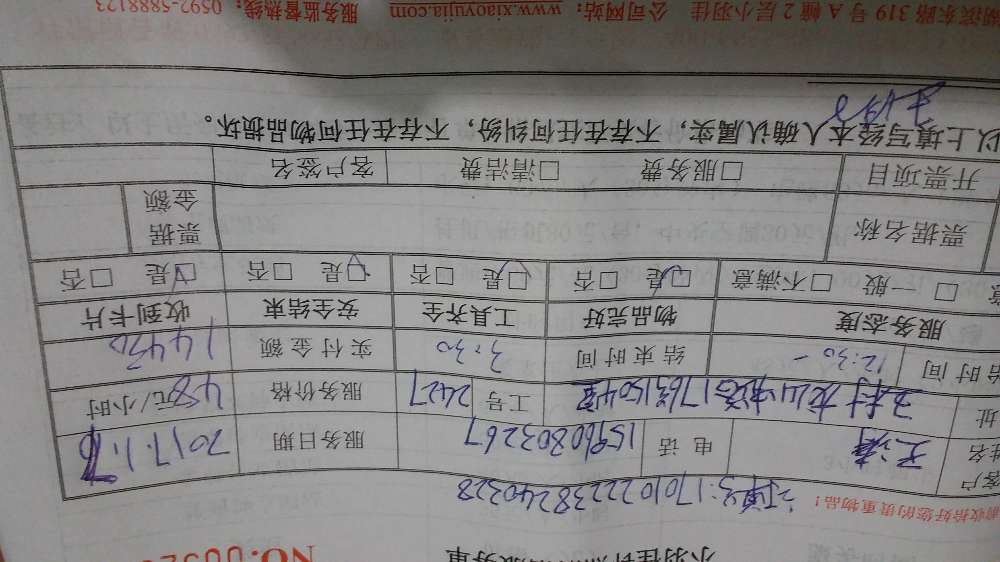 NO:
订单号:1701022238240328
前收拾好您的贵重物品！
客户姓名 王涛 电话 15960803267 服务日期 2017.1.6
址 龙山中路176号1504室 工号 2427 服务价格 48元/小时
始时间 12:30 - 结束时间 3:30 实付金额 144元
服务态度 物品完好 工具齐全 安全结束 收到卡片
意 □一般 □不满意 □是 □否 □是 □否 □是 □否 □是 □否
票据名称 票据金额
开票项目 □服务费 □清洁费 客户签名
以上填写经本人确认属实，不存在任何纠纷，不存在任何物品损坏。
湖滨东路 319 号 A 幢 2 层小羽佳 公司网站：www.xiaoyujia.com 服务监督热线：0592-5888123